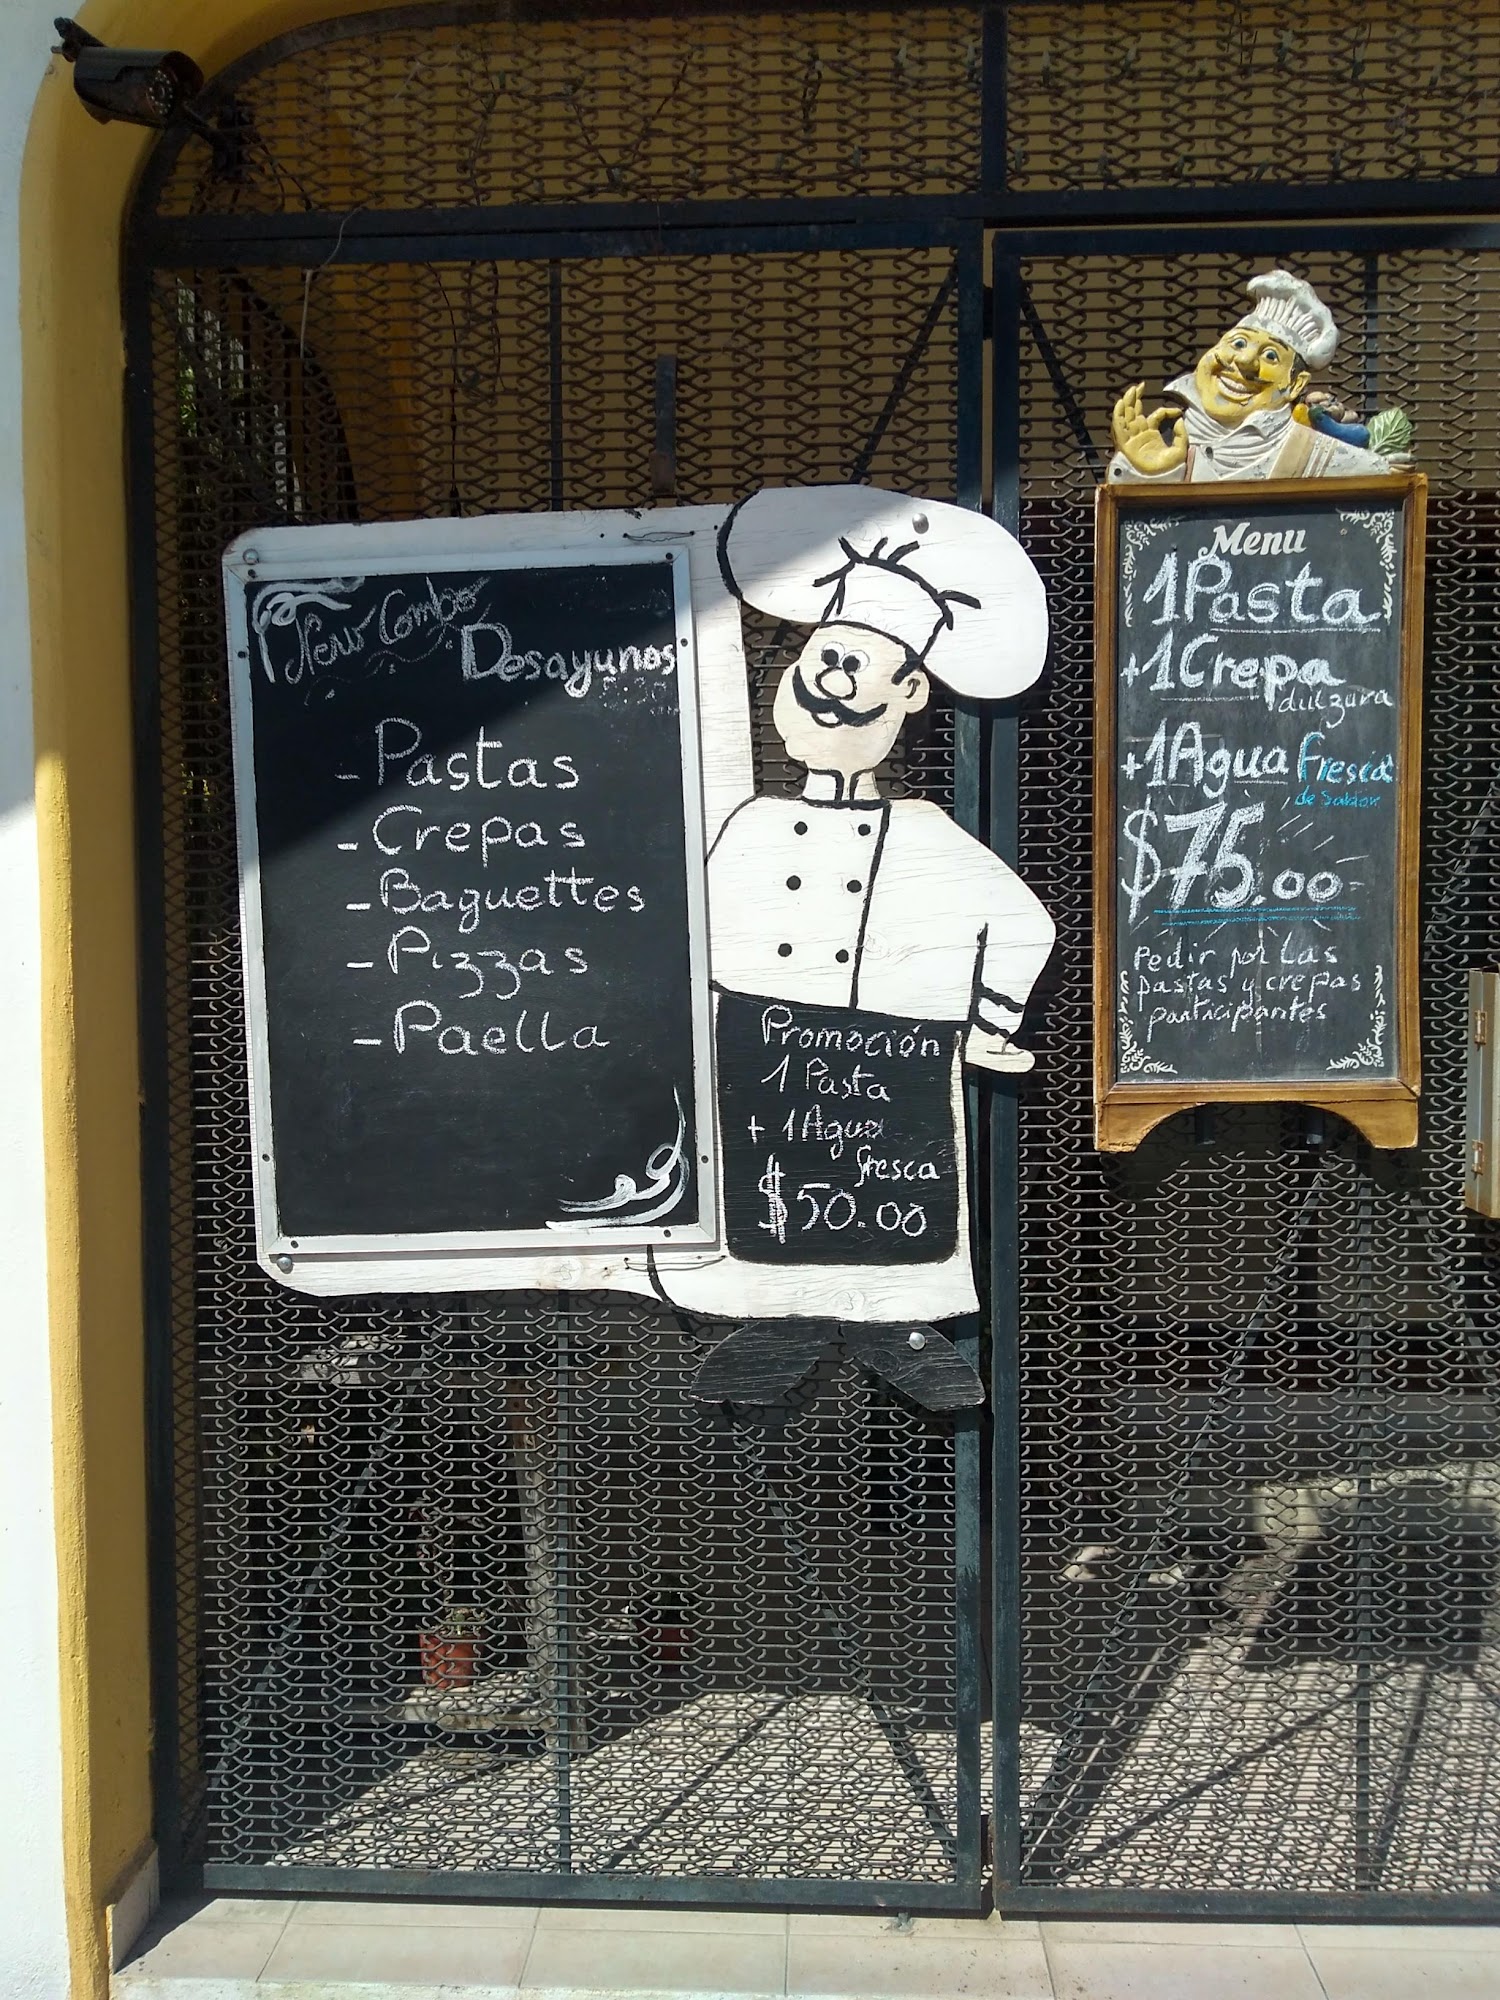 New Combo
Desayunos
- Pastas
- Crepas
- Baguettes
- Pizzas
- Paella
Promoción
1 Pasta
+ 1 Agua
fresca
$50.00
Menu
1 Pasta
+ 1 Crepa
dulzura
+ 1 Agua fresca
de Sabor
$75.00
Pedir por las
pastas y crepas
participantes